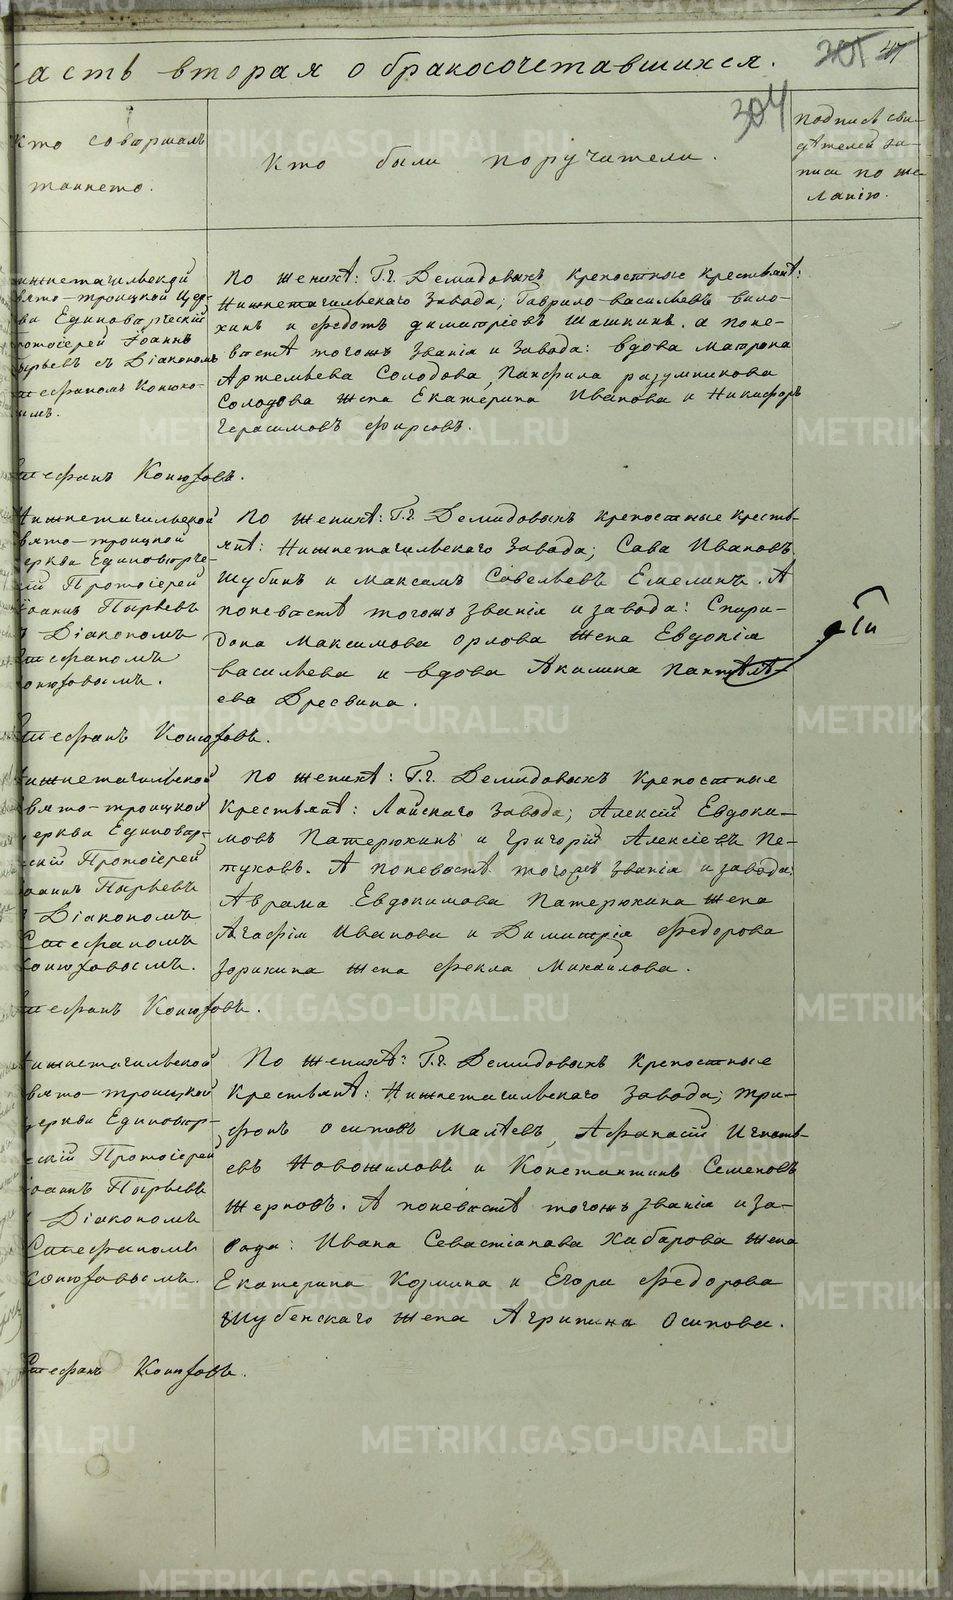 METRIKI.GASO-URAL.RU
асть вторая о бракосочетавшихся.
304
Кто совершалъ
таинство.
Кто были поручители.
Подпись сви-
дѣтелей за-
писи по же-
ланію.
ижнетагильской
вято-троицкой цер-
ви Единоверческій
ротоіерей Іоаннъ
ырьевъ съ Діакономъ
тефаномъ Конюхо-
ымъ.
По женихѣ: Г.г. Демидовыхъ крепостные крестьянѣ:
Нижнетагильскаго завода; Гаврило васильевъ вило-
хинъ и федотъ димитріевъ Шашкинъ. а поне-
вѣстѣ тогожъ званія и завода: вдова Матрона
Артемьева Солодова, Панфила разумникова
Солодова жена Екатерина Иванова и Никифоръ
Герасимовъ Фирсовъ.
Стефанъ Конюховъ.
Нижнетагильской
вято-троицкой
церкви Единоверче-
кій Протоіерей
Іоаннъ Пырьевъ
Діакономъ
Стефаномъ
онюховымъ.
По женихѣ: Г.г. Демидовыхъ крепостные кресть-
янѣ: Нижнетагильскаго завода; Сава Ивановъ
Шубинъ и Максимъ Савельевъ Емелинъ. А
поневѣстѣ тогожъ званія и завода: Спири-
дона Максимова Орлова жена Евдокія
васильева и вдова Акилина Пантелѣ-
ева Дресвина.
Стефанъ Конюховъ.
Нижнетагильской
вято-троицкой
церкви Единовер-
скій Протоіерей
оаннъ Пырьевъ
Діакономъ
Стефаномъ
Конюховымъ.
По женихѣ: Г.г. Демидовыхъ крепостные
крестьянѣ: Лайскаго завода; Алексій Евдоки-
мовъ Патерюхинъ и Григорій Алексіевъ Пе-
туховъ. А поневѣстѣ тогожъ званія и завода:
Аврама Евдокимова Патерюхина жена
Агафія Иванова и Димитрія Федорова
Зорихина жена Фекла Михаилова.
Стефанъ Конюховъ.
Нижнетагильской
вято-троицкой
церкви Единовер-
скій Протоіерей
оаннъ Пырьевъ
Діакономъ
Стефаномъ
Конюховымъ.
По женихѣ: Г.г. Демидовыхъ крепостные
крестьянѣ: Нижнетагильскаго завода; Три-
фонъ Осиповъ Малѣевъ, Афанасій Игнать-
евъ Новожиловъ и Константинъ Семеновъ
Жерновъ. А поневѣстѣ тогожъ званія и за-
вода: Ивана Севастіанава Хабарова жена
Екатерина Козмина и Егора Федорова
Шубенскаго жена Агрипина Осипова.
Стефанъ Конюховъ.